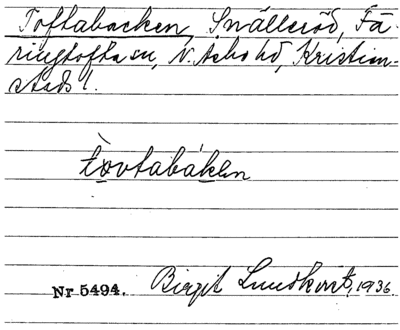 Toftabacken, Snälleröd, Fä-
ringtofta sn, N. Asbo hd, Kristian-
stads l.
tòvtabákən
Nr 5494. Birgit Lundkvist, 1936.